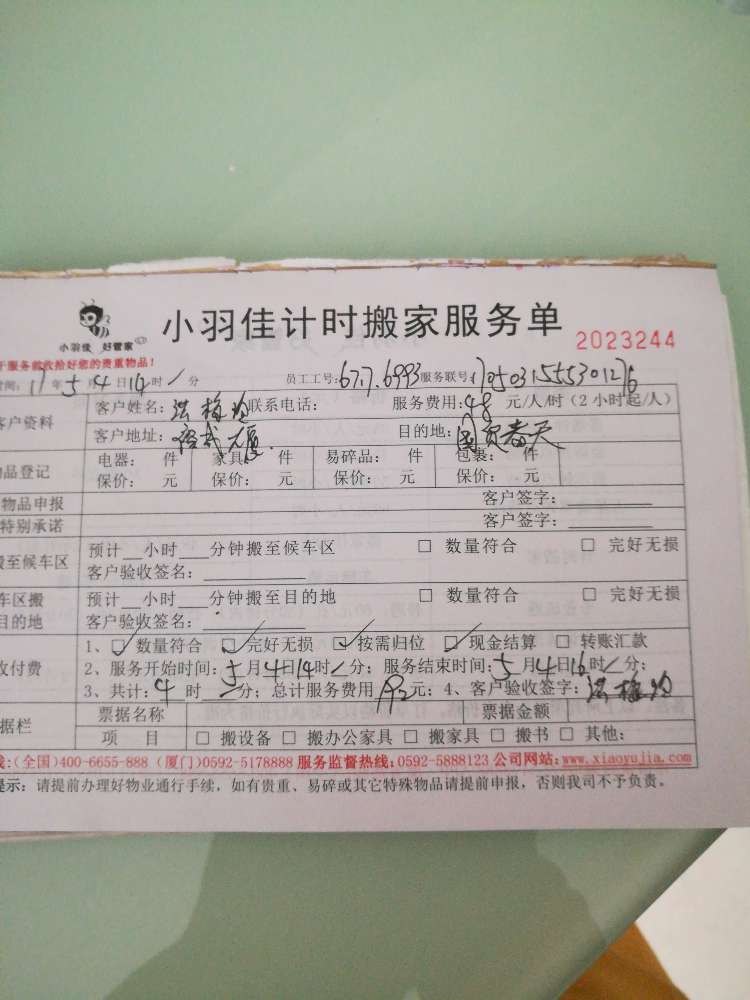 小羽佳 好管家
小羽佳计时搬家服务单 2023244
服务前收拾好您的贵重物品!
年5月4日14时/分 员工工号: 服务联号:
客户资料 客户姓名: 洪梅 联系电话: 服务费用:48元/人/时(2小时起/人)
客户地址: 目的地:国贸春天
品登记 电器: 件 家具: 件 易碎品: 件 包裹: 件
保价: 元 保价: 元 保价: 元 保价: 元
物品申报 客户签字:
特别承诺 客户签字:
至候车区 预计 小时 分钟搬至候车区 □ 数量符合 □ 完好无损
客户验收签名:
车区搬 预计 小时 分钟搬至目的地 □ 数量符合 □ 完好无损
目的地 客户验收签名:
1、☑ 数量符合 ☑ 完好无损 ☑ 按需归位 ☑ 现金结算 □ 转账汇款
收付费 2、服务开始时间:5月4日14时/分; 服务结束时间:5月4日16时/分;
3、共计:4时/分; 总计服务费用 192元; 4、客户验收签字: 洪梅
据栏 票据名称 票据金额
项 目 □ 搬设备 □ 搬办公家具 □ 搬家具 □ 搬书 □ 其他:
线:(全国)400-6655-888 (厦门)0592-5178888 服务监督热线:0592-5888123 公司网站:www.xiaoyujia.com
提示: 请提前办理好物业通行手续,如有贵重、易碎或其它特殊物品请提前申报,否则我司不予负责。